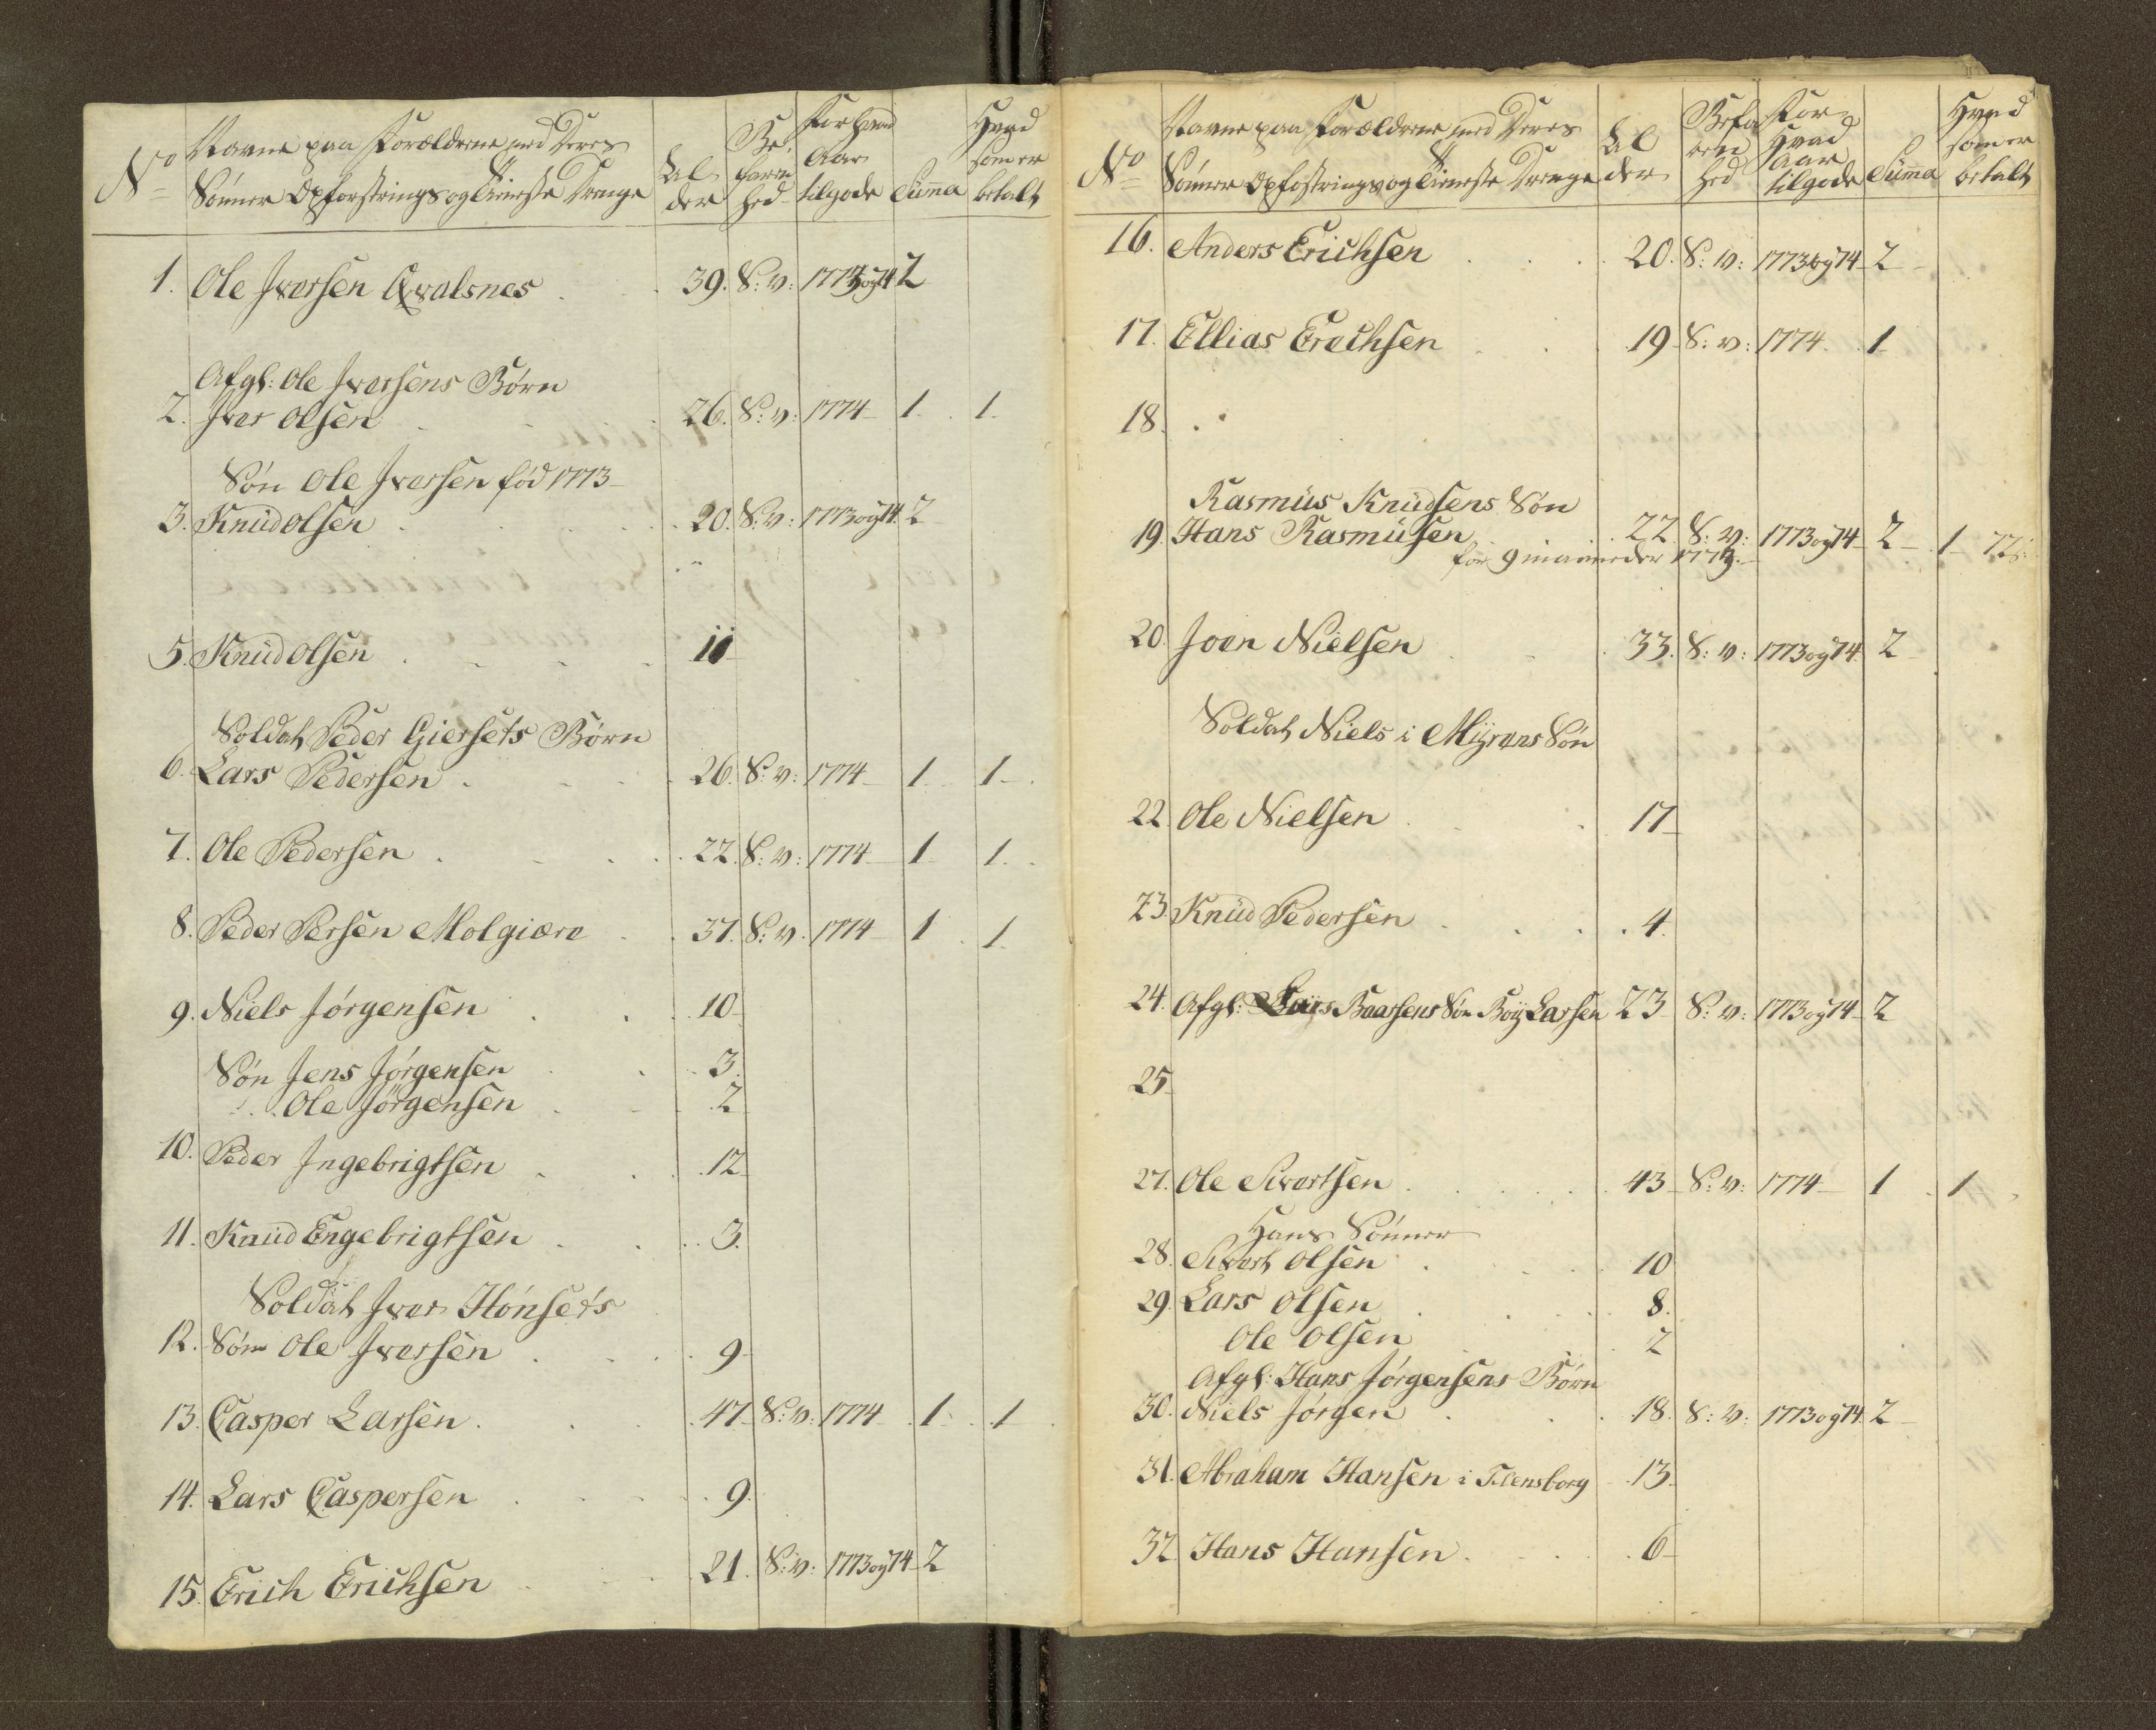 No Navne paa Forældrene med Deres Sønner Opfostrings og Tieneste Drenge Alder Befarenhed For hvad Aar tilgode Suma Hvad som er betalt
1. Ole Iversen Qvalsnes 39. S: v: 1773 og 74 2
Afgl: Ole Iversens Børn
2. Iver Olsen 26. S: v: 1774 1 1
Søn Ole Iversen fød 1773
3. Knüd Olsen 20. S: v: 1773 og 74 2
5. Knüd Olsen 11
Soldat Peder Giersets Børn
6. Lars Pedersen 26. S: v: 1774 1 1
7. Ole Pedersen 22. S: v: 1774 1 1
8. Peder Persen Molgiære 37. S: v: 1774 1 1
9. Niels Jørgensen 10
Søn Jens Jørgensen 3.
Ole Jørgensen 2
10. Peder Ingebrigtsen 12
11. Knüd Engebrigtsen 3.
Soldat Iver Hønsets
12. Søn Ole Iversen 9
13. Casper Larsen 47 S: v: 1774 1 1
14. Lars Caspersen 9.
15. Erich Erichsen 21. S: v: 1773 og 74 2
No Navne paa Forældrene med Deres Sønner Opfostrings og Tieneste Drenge Alder Befarenhed For Hvad Aar tilgode Suma Hvad som er betalt
16. Anders Erichsen 20. S: v: 1773 og 74 2
17. Ellias Erechsen 19 S: v: 1774 1
18.
Rasmüs Knüdsens Søn
19. Hans Rasmüsen 22 S: v: 1773 og 74 2 1 72s:
for 9 maaneder 1773.
20. Joen Nielsen 33. S: v: 1773 og 74 2
Soldat Niels i Myrens Søn
22. Ole Nielsen 17
23. Knüd Pedersen 4.
24. Afgl: Lars Baarsens Søn Boy Larsen 23 S: v: 1773 og 74 2
25
27. Ole Sivertsen 43 S: v: 1774 1 1
Hans Sønner
28. Sivert Olsen 10
29. Lars Olsen 8.
Ole Olsen 2
Afgl: Hans Jørgensens Børn
30. Niels Jørgen 18. S: v: 1773 og 74. 2
31. Abraham Hansen i Flensborg 13
32 Hans Hansen 6